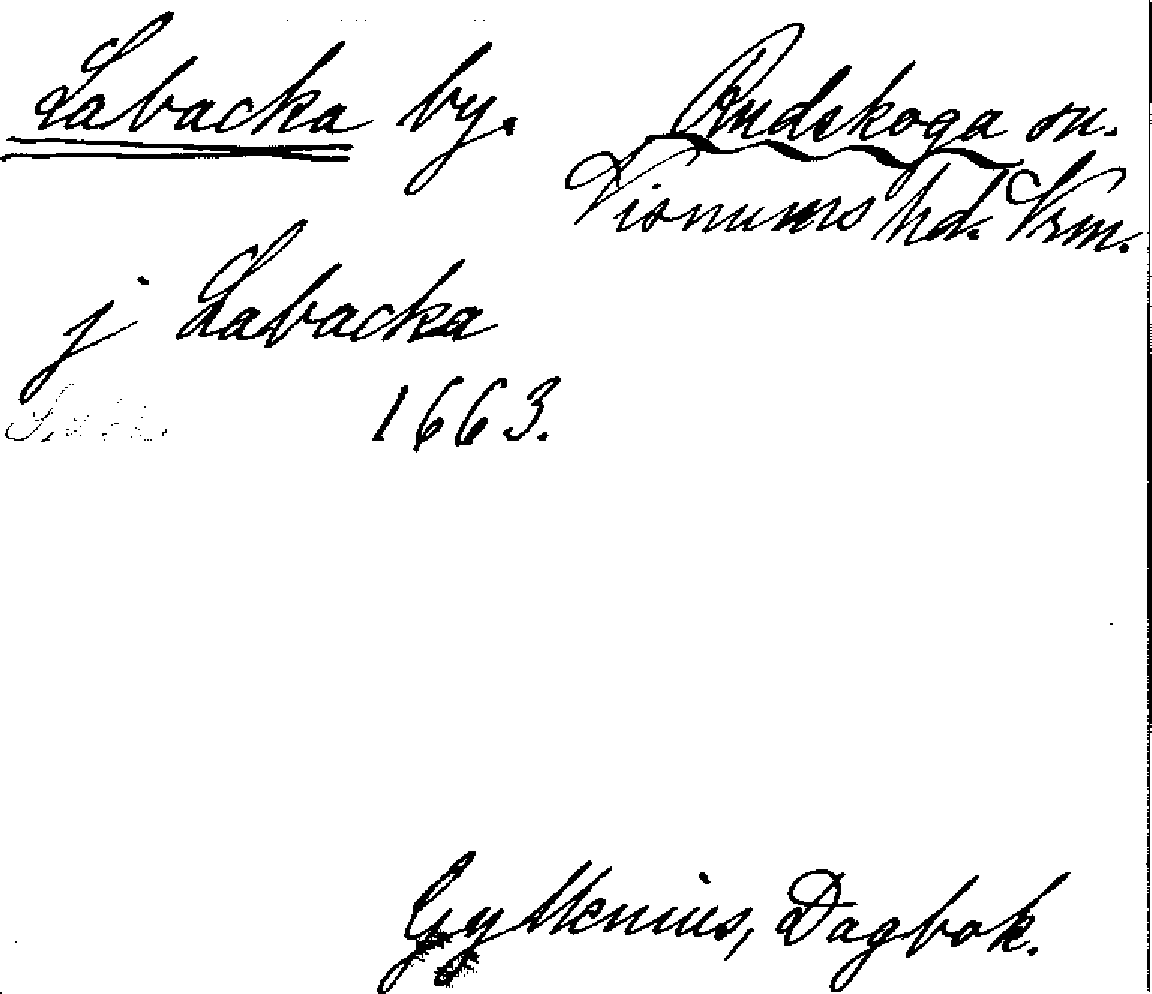 Labacka by.
Rudskoga sn.
Visnums hd. Vrm.
j Labacka
1663.
Gyllenius, Dagbok.